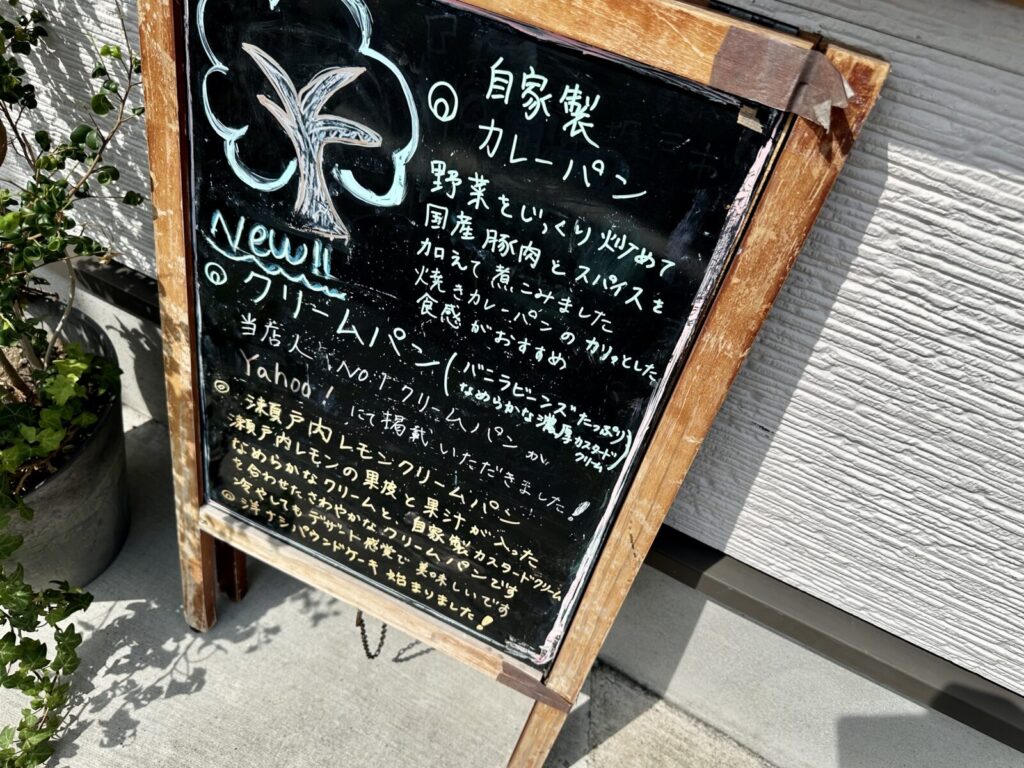 自家製
カレーパン
野菜をじっくり炒めて
国産豚肉とスパイスを
加えて煮こみました
焼きカレーパンのカリッとした
食感がおすすめ
New!!
クリームパン(バニラビーンズたっぷり
なめらかな濃厚カスタード
クリーム)
当店人気No.1クリームパンが
Yahoo!にて掲載いただきました!
瀬戸内レモンクリームパン
瀬戸内レモンの果皮と果汁が入った
なめらかなクリームと、自家製カスタードクリーム
を合わせたさわやかなクリームパンです
冷やしてもデザート感覚で美味しいです
洋ナシパウンドケーキ始まりました!